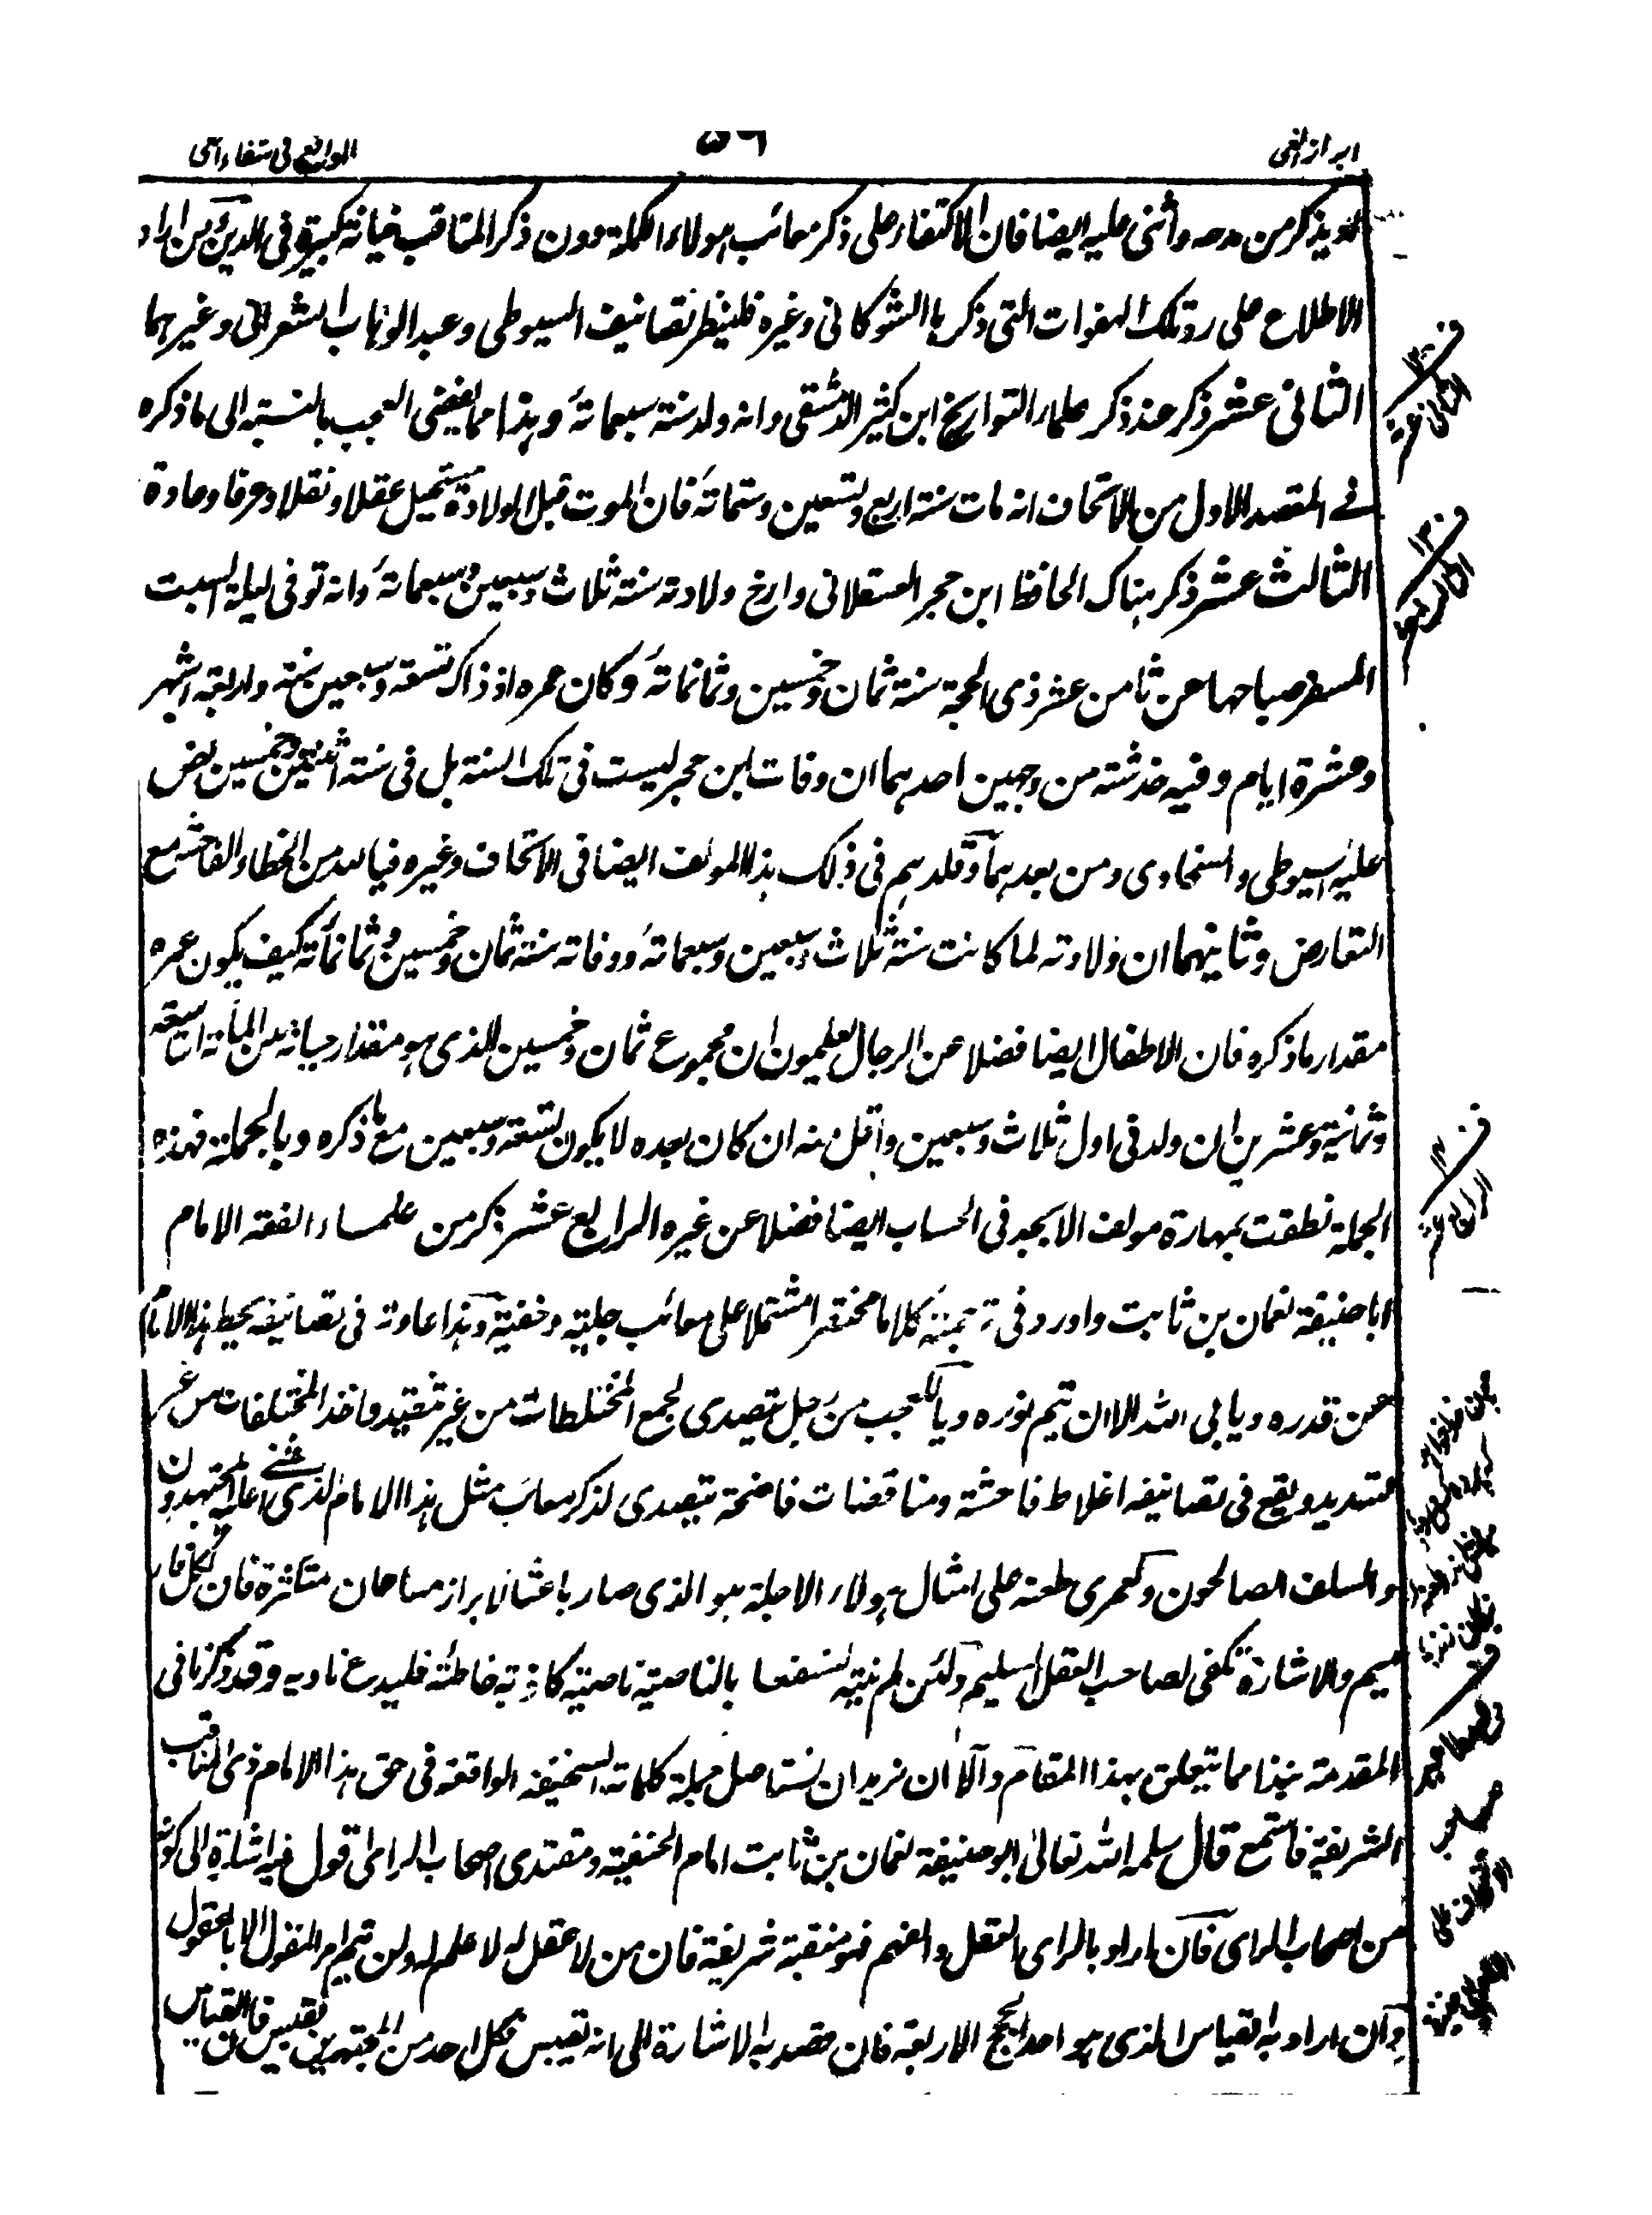 ابراز الغى
٥٦
الواقع فى شفاء العى
لم يذكر من مدحه وأثنى عليه ايضا فان الاكتفاء على ذكر معائب هؤلاء الكملة دون ذكر المناقب خيانة كبيرة فى الدين من اراد
الاطلاع على رد تلك الهفوات التى ذكرها الشوكانى وغيره فلينظر تصانيف السيوطى وعبد الوهاب الشعرانى وغيرهما
الثانى عشر ذكر عند ذكر علماء التواريخ ابن كثير الدمشقى وانه ولد سنة سبعمائة وهذا مما يفضى العجب بالنسبة الى ما ذكره
فى المقصد الاول من الاتحاف انه مات سنة اربع وتسعين وستمائة فان الموت قبل الولادة مستحيل عقلا ونقلا وعرفا وعادة
الثالث عشر ذكر هناك الحافظ ابن حجر العسقلانى وارخ ولادته سنة ثلاث وسبعين وسبعمائة وانه توفى ليلة السبت
المسفر صباحها عن ثامن عشر ذى الحجة سنة ثمان وخمسين وثمانمائة وكان عمره اذ ذاك تسعة وسبعين سنة واربعة اشهر
وعشرة ايام وفيه خدشة من وجهين احدهما ان وفات ابن حجر ليست فى تلك السنة بل فى سنة اثنتين وخمسين نص
عليه السيوطى والسخاوى ومن بعدهما وقلدهم فى ذلك هذا المولف ايضا فى الاتحاف وغيره فيا لله من الخطاء الفاحش مع
التعارض وثانيهما ان ولادته لما كانت سنة ثلاث وسبعين وسبعمائة ووفاته سنة ثمان وخمسين وثمانمائة كيف يكون عمره
مقدار ما ذكره فان الاطفال ايضا فضلا عن الرجال يعلمون ان مجموع ثمان وخمسين الذى هو مقدار حياته من المائة التاسعة
وثمانية وعشرين ان ولد فى اول ثلاث وسبعين واقل منه ان كان بعده لا يكون تسعة وسبعين مع ما ذكره وبالجملة فهذه
الجملة نطقت بمهارة مولف الابجد فى الحساب ايضا فضلا عن غيره الرابع عشر ذكر من علماء الفقه الامام
ابا حنيفة نعمان بن ثابت واورد فى ترجمته كلاما مختصرا مشتملا على معائب جلية وخفية وهذا عادته فى تصانيفه يحط هذا الامام
عن قدره ويابى الله الا ان يتم نوره ويا للعجب من رجل يتصدى لجمع المختلطات من غير تنقيد واخذ المختلفات من غير
تسديد ويقع فى تصانيفه اغلاط فاحشة ومناقضات فاضحة يتصدى لذكر معائب مثل هذا الامام الذى اثنى عليه المجتهدون
والسلف الصالحون ولعمرى طعنه على امثال هؤلاء الاجلة هو الذى صار باعثا لابراز مسامحات متكثرة فان لكل فار
ميم والاشارة تكفى لصاحب العقل السليم ولئن لم ينته لنسفعا بالناصية ناصية كاذبة خاطئة فليدع ناديه وقد ذكرنا فى
المقدمة نبذا مما يتعلق بهذا المقام والآن نريد ان نستاصل جملة كلماته السخيفة الواقعة فى حق هذا الامام ذى المناقب
الشريفة فاستمع قال سلمه الله تعالى ابو حنيفة نعمان بن ثابت امام الحنفية ومقتدى اصحاب الراى اقول فيه اشارة الى كونه
من اصحاب الراى فان اراد بالراى العقل والفهم فهو منقبة شريفة فان من لا عقل له لا علم له ولن يتم امر المنقول الا بالمعقول
وان اراد به القياس الذى هو احد الحجج الاربعة فان قصد به الاشارة الى انه يقيس فكل احد من المجتهدين يقيس فان القياس